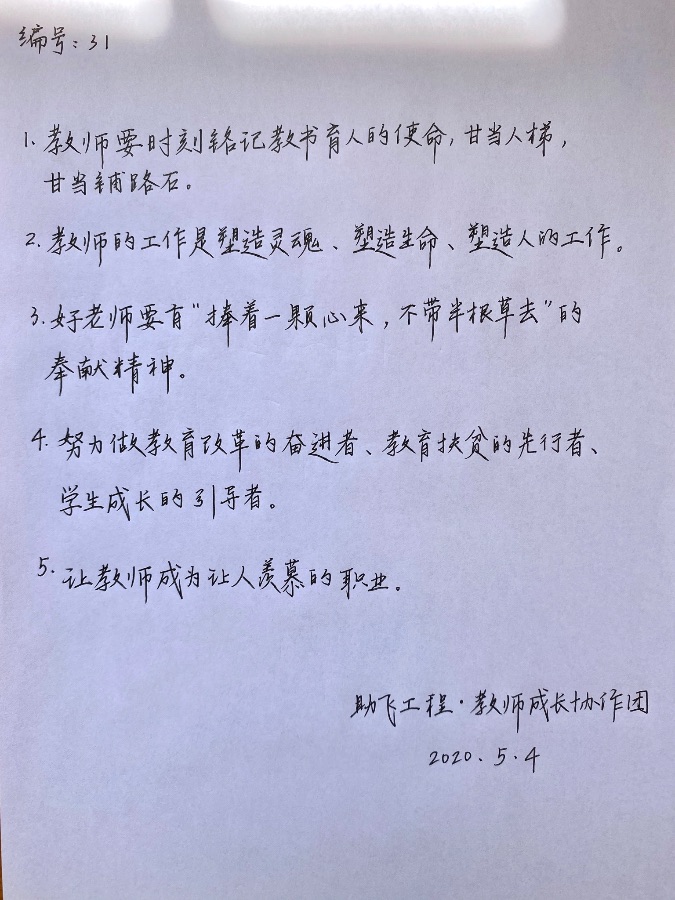 编号：31
1. 教师要时刻铭记教书育人的使命，甘当人梯，
甘当铺路石。
2. 教师的工作是塑造灵魂、塑造生命、塑造人的工作。
3. 好老师要有“捧着一颗心来，不带半根草去”的
奉献精神。
4. 努力做教育改革的奋进者、教育扶贫的先行者、
学生成长的引导者。
5. 让教师成为让人羡慕的职业。
助飞工程·教师成长协作团
2020.5.4